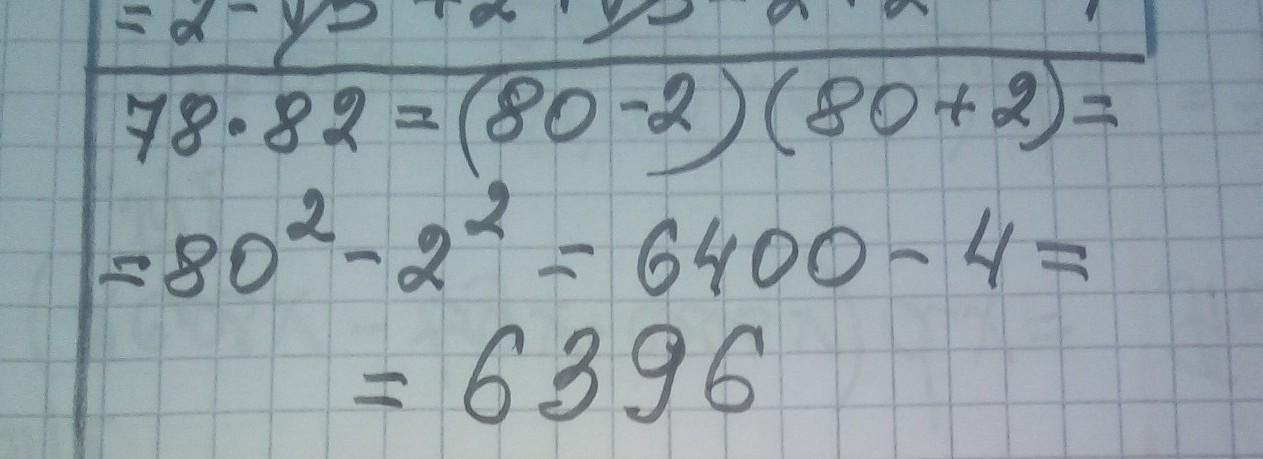 78·82=(80-2)(80+2)=
=80²-2²=6400-4=
=6396